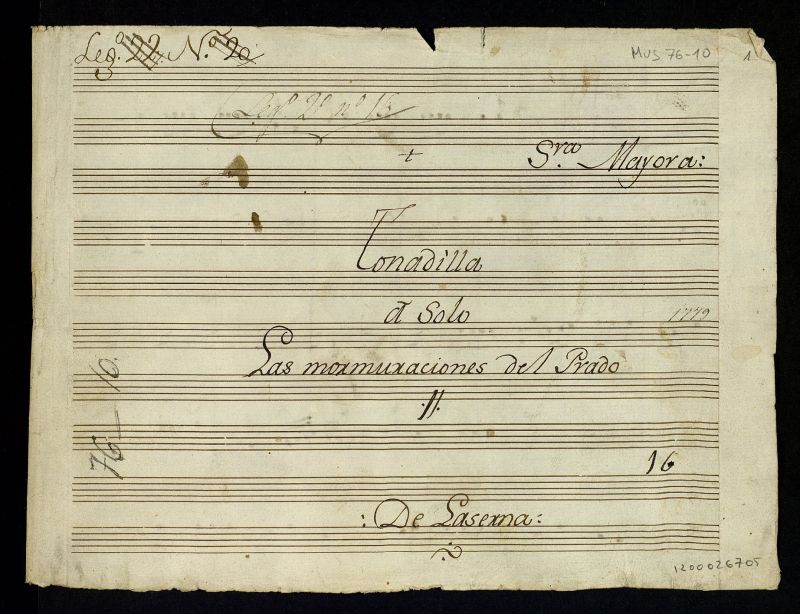 Leg.º 22. N.º 20
MUS 76-10
1
Leg.º 2º nº 15
+
S.ra Mayora:
Tonadilla
â Solo
1779
Las mormuraciones del Prado
.//.
76-10.
16
: De Laserna:
1200026705